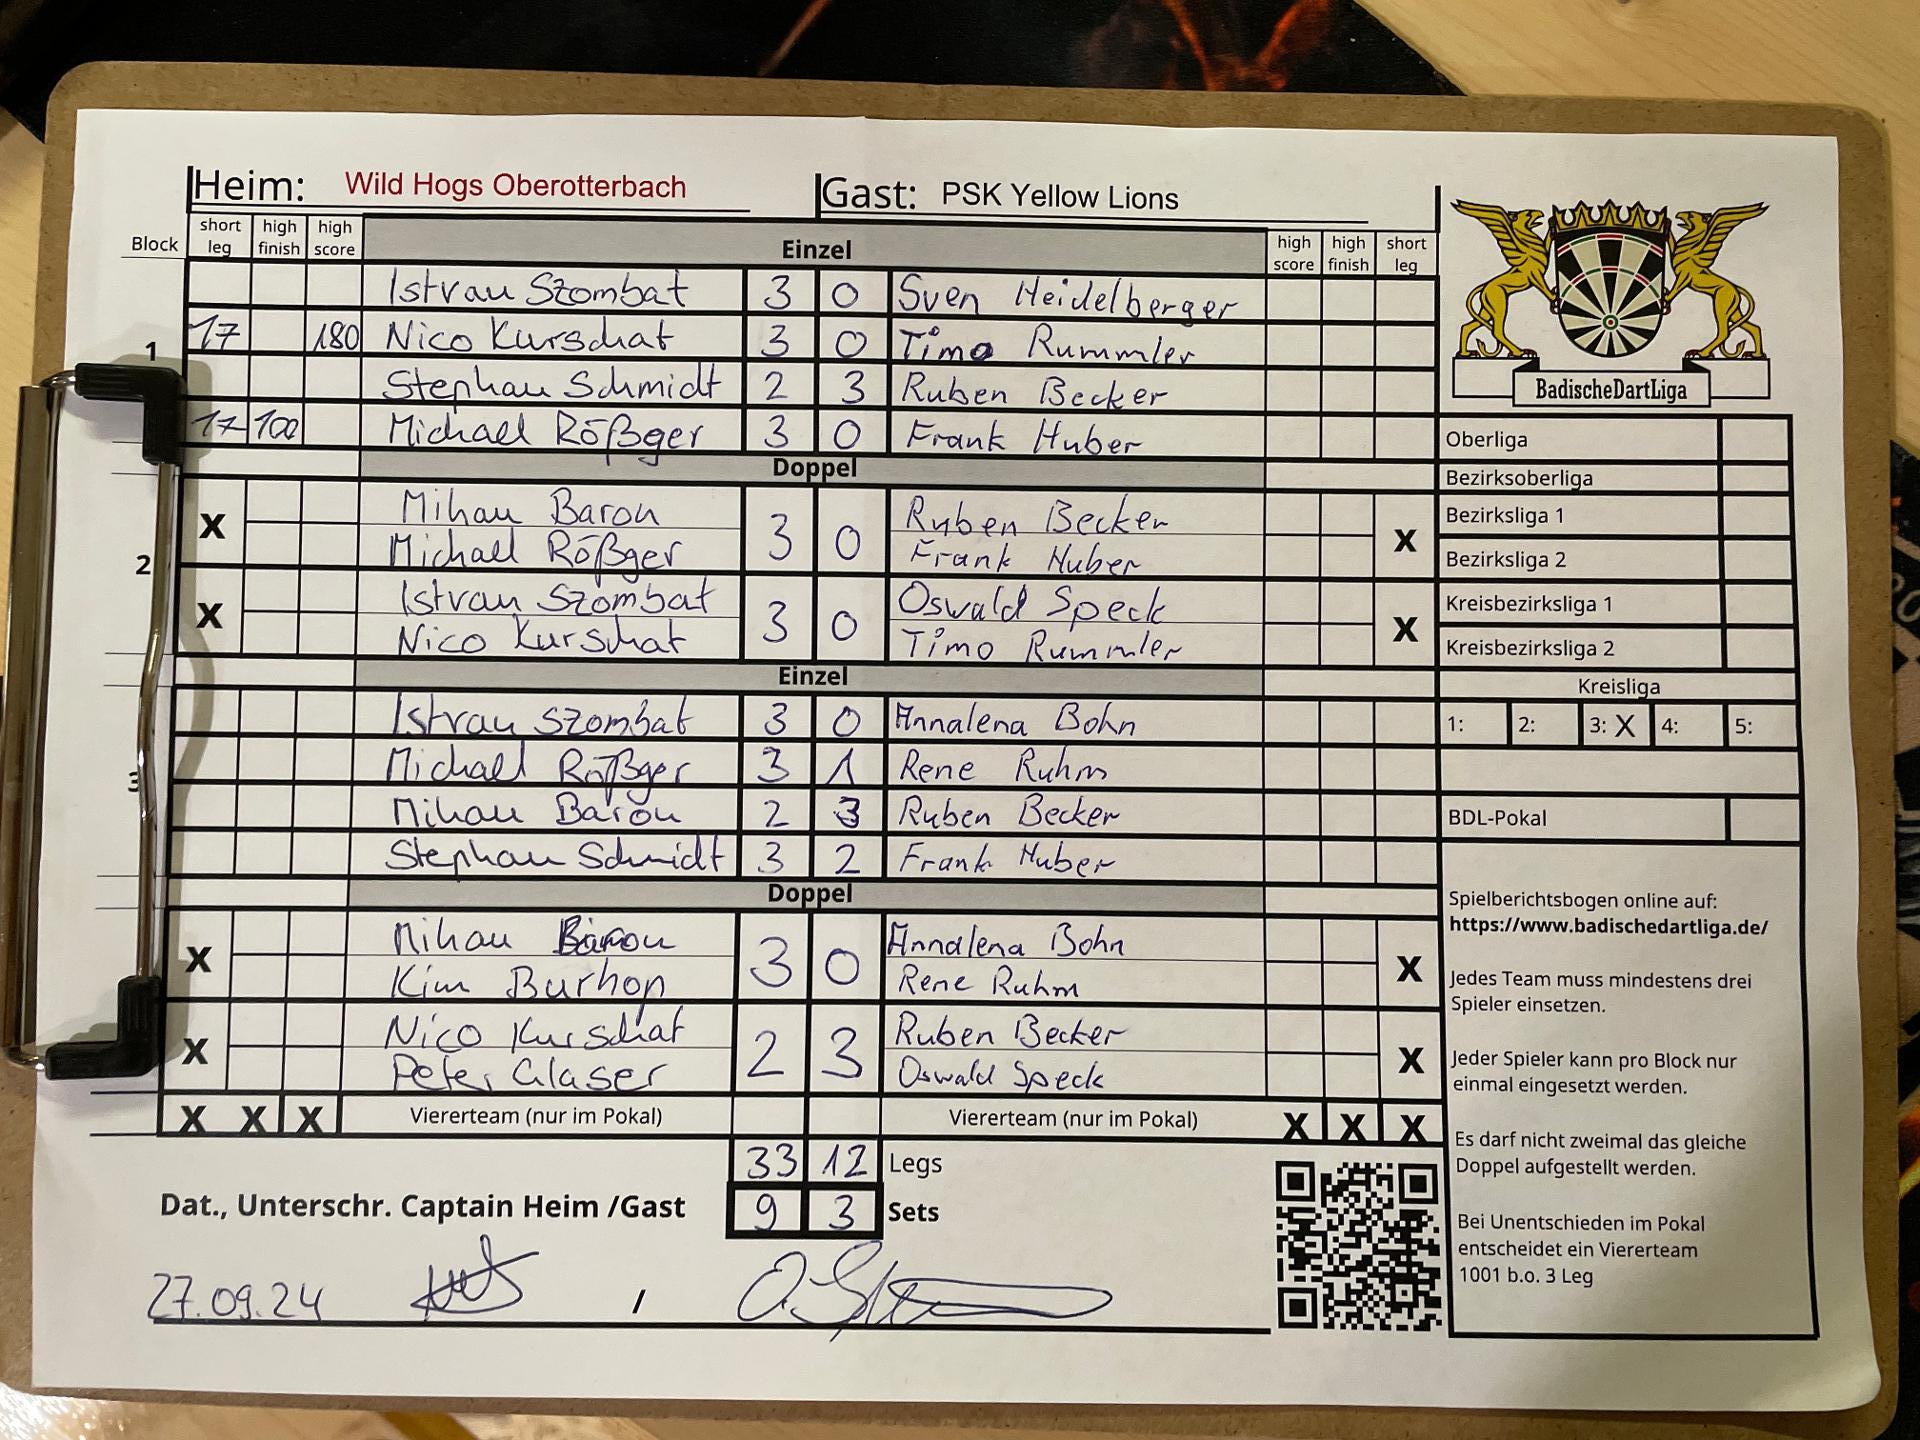 Heim: Wild Hogs Oberotterbach Gast: PSK Yellow Lions
Block short leg high finish high score Einzel high score high finish short leg
BadischeDartLiga
1
Istvan Szombat 3 0 Sven Heidelberger
17 180 Nico Kurschat 3 0 Timo Rummler
Stephan Schmidt 2 3 Ruben Becker
17 100 Michael Rößger 3 0 Frank Huber
Doppel
2
X Mihau Baron 3 0 Ruben Becker X
Michael Rößger Frank Huber
X Istvan Szombat 3 0 Oswald Speck X
Nico Kurschat Timo Rummler
Einzel
3
Istvan Szombat 3 0 Annalena Bohn
Michael Rößger 3 1 Rene Ruhm
Mihau Baron 2 3 Ruben Becker
Stephan Schmidt 3 2 Frank Huber
Doppel
X Mihau Baron 3 0 Annalena Bohn X
Kim Burhop Rene Ruhm
X Nico Kurschat 2 3 Ruben Becker X
Peter Glaser Oswald Speck
X X X Viererteam (nur im Pokal) Viererteam (nur im Pokal) X X X
33 12 Legs
9 3 Sets
Dat., Unterschr. Captain Heim /Gast
27.09.24 /
Oberliga
Bezirksoberliga
Bezirksliga 1
Bezirksliga 2
Kreisbezirksliga 1
Kreisbezirksliga 2
Kreisliga
1: 2: 3: X 4: 5:
BDL-Pokal
Spielberichtsbogen online auf:
https://www.badischedartliga.de/
Jedes Team muss mindestens drei
Spieler einsetzen.
Jeder Spieler kann pro Block nur
einmal eingesetzt werden.
Es darf nicht zweimal das gleiche
Doppel aufgestellt werden.
Bei Unentschieden im Pokal
entscheidet ein Viererteam
1001 b.o. 3 Leg